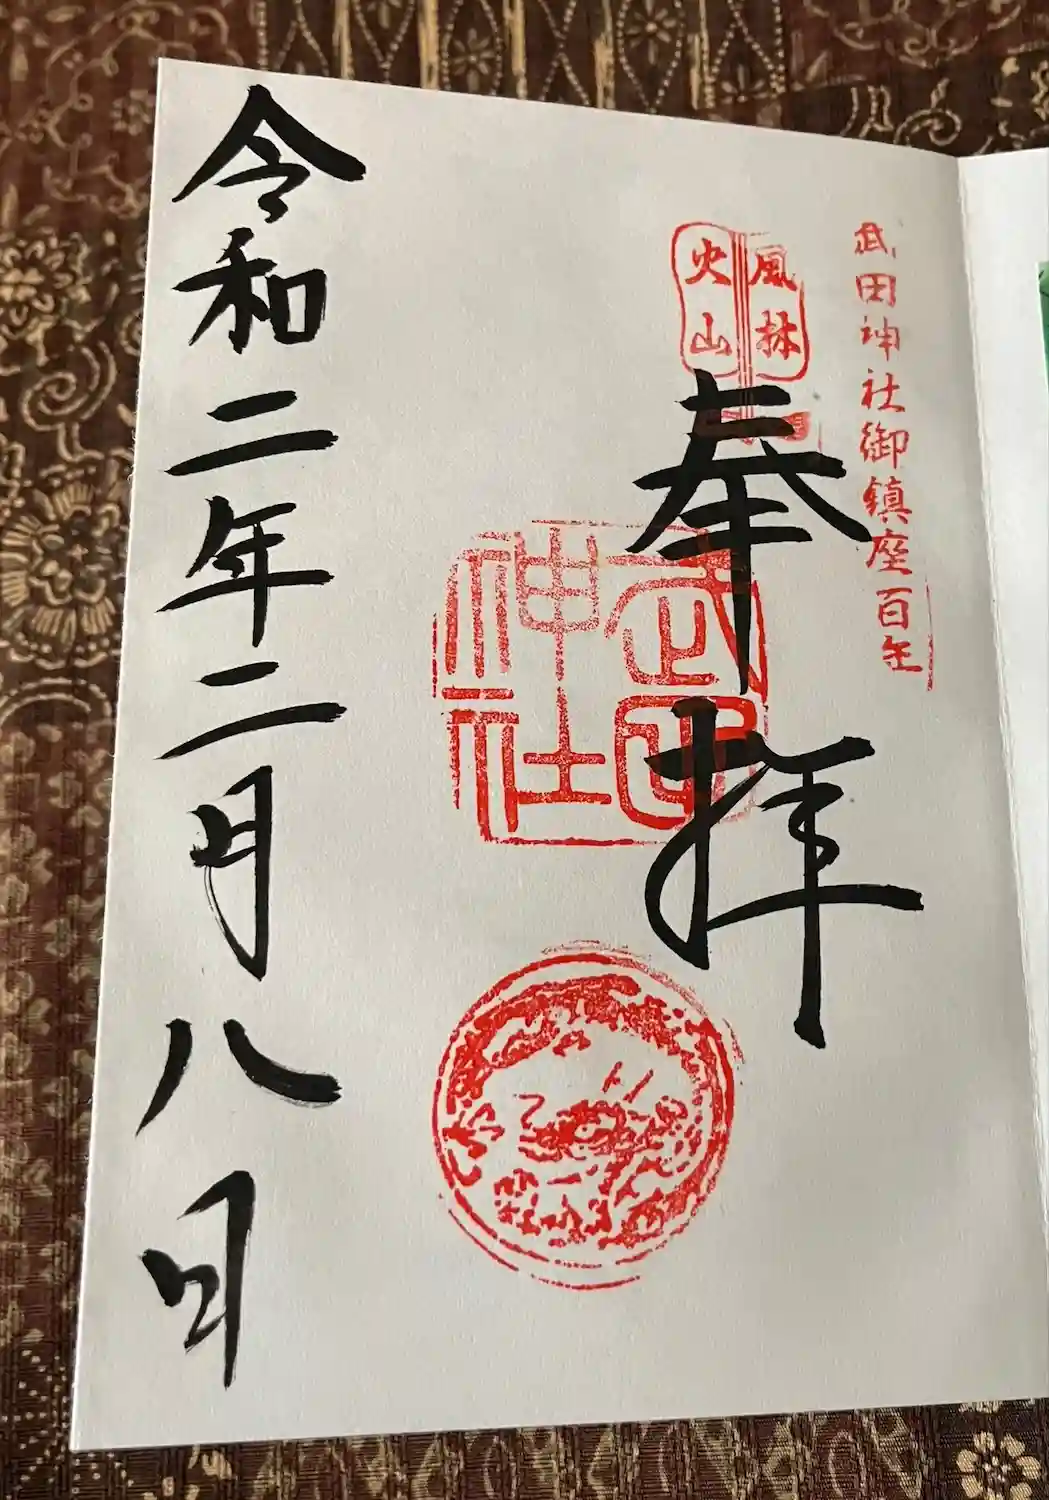 武田神社御鎮座百年
風林
火山
奉拝
武田
神社
令和二年二月八日